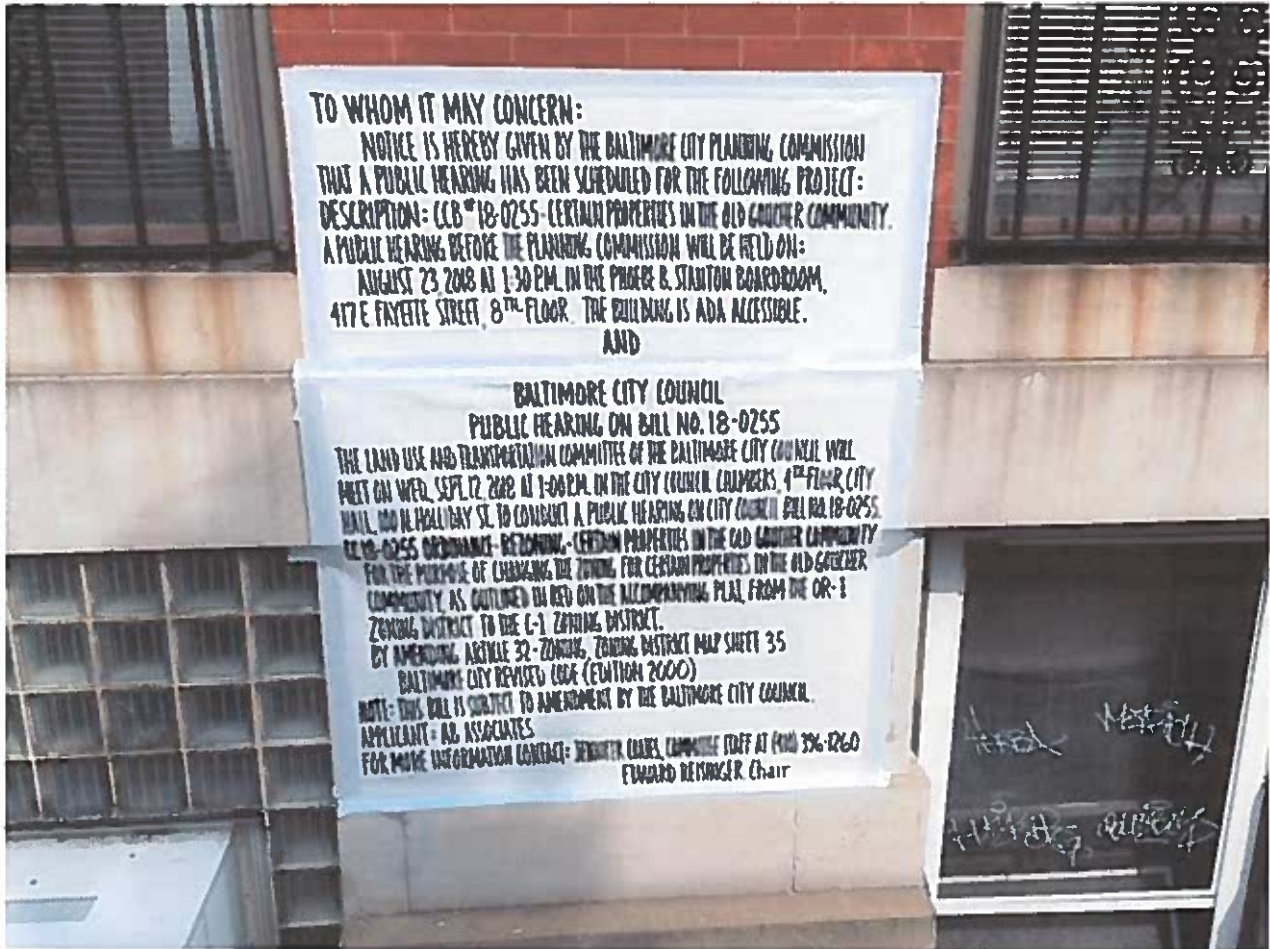 TO WHOM IT MAY CONCERN:
NOTICE IS HEREBY GIVEN BY THE BALTIMORE CITY PLANNING COMMISSION
THAT A PUBLIC HEARING HAS BEEN SCHEDULED FOR THE FOLLOWING PROJECT:
DESCRIPTION: CCB# 18-0255-CERTAIN PROPERTIES IN THE OLD GOUCHER COMMUNITY.
A PUBLIC HEARING BEFORE THE PLANNING COMMISSION WILL BE HELD ON:
AUGUST 23, 2018 AT 1:30 PM. IN THE PHOEBE B. STANTON BOARDROOM,
417 E. FAYETTE STREET, 8TH FLOOR. THE BUILDING IS ADA ACCESSIBLE.
AND
BALTIMORE CITY COUNCIL
PUBLIC HEARING ON BILL NO. 18-0255
THE LAND USE AND TRANSPORTATION COMMITTEE OF THE BALTIMORE CITY COUNCIL WILL
MEET ON WED, SEPT. 12, 2018 AT 1:00 PM. IN THE CITY COUNCIL CHAMBERS, 4TH FLOOR, CITY
HALL, 100 N. HOLLIDAY ST. TO CONDUCT A PUBLIC HEARING ON CITY COUNCIL BILL NO. 18-0255.
CC 18-0255 ORDINANCE-REZONING-CERTAIN PROPERTIES IN THE OLD GOUCHER COMMUNITY
FOR THE PURPOSE OF CHANGING THE ZONING FOR CERTAIN PROPERTIES IN THE OLD GOUCHER
COMMUNITY, AS OUTLINED IN RED ON THE ACCOMPANYING PLAT, FROM THE OR-1
ZONING DISTRICT TO THE C-1 ZONING DISTRICT.
BY AMENDING ARTICLE 32-ZONING, ZONING DISTRICT MAP SHEET 35
BALTIMORE CITY REVISED CODE (EDITION 2000)
NOTE: THIS BILL IS SUBJECT TO AMENDMENT BY THE BALTIMORE CITY COUNCIL.
APPLICANT: AB ASSOCIATES
FOR MORE INFORMATION CONTACT: JENNIFER COATES, COMMITTEE STAFF AT (410) 396-1260
EDWARD REISINGER Chair